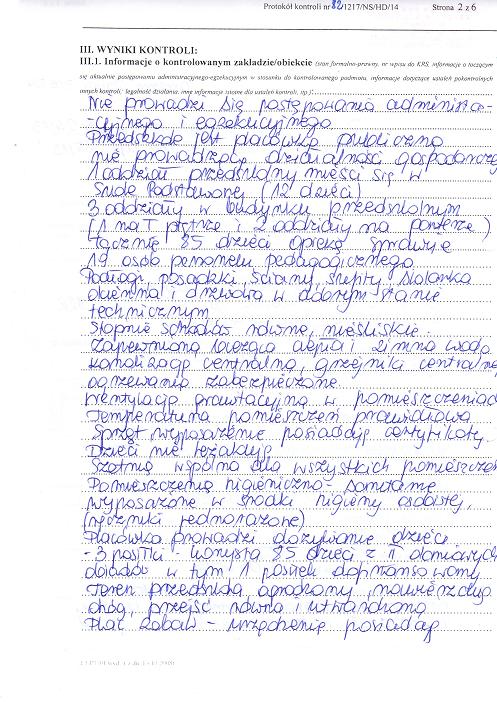 Protokół kontroli nr 82/1217/NS/HD/14 Strona 2 z 6
III. WYNIKI KONTROLI:
III.1. Informacje o kontrolowanym zakładzie/obiekcie (stan formalno-prawny, nr wpisu do KRS, informacje o toczącym
się aktualnie postępowaniu administracyjnego-egzekucyjnym w stosunku do kontrolowanego podmiotu, informacje dotyczące ustaleń pokontrolnych
innych kontroli; legalność działania, inne informacje istotne dla ustaleń kontroli, itp.):
Nie prowadzi się postępowania administra-
-cyjnego i egzekucyjnego
Przedszkole jest placówką publiczną
nie prowadzącą działalności gospodarczej
1 oddział przedszkolny mieści się w
Szkole Podstawowej (12 dzieci)
3 oddziały w budynku przedszkolnym
(1 na I piętrze i 2 oddziały na parterze)
Łącznie 85 dzieci opiekę sprawuje
19 osób personelu pedagogicznego
Podłogi, posadzki, ściany, sufity, stolarka
okienna i drzwiowa w dobrym stanie
technicznym
Stopnie schodów równe, nieśliskie
Zapewniona bieżąca ciepła i zimna woda
kanalizacja centralna, grzejniki centralnego
ogrzewania zabezpieczone
Wentylacja grawitacyjna w pomieszczeniach
Temperatura pomieszczeń prawidłowa
Sprzęt wyposażenie posiadają certyfikaty.
Dzieci nie leżakują
Szatnia wspólna dla wszystkich pomieszczeń
Pomieszczenia higieniczno-sanitarne
wyposażone w środki higieny osobistej,
(ręczniki jednorazowe)
Placówka prowadzi dożywianie dzieci
- 3 posiłki - korzysta 85 dzieci z II
obiadów w tym 1 posiłek dofinansowany
Teren przedszkola ogrodzony, nawierzchnia
dróg, przejść równa i utwardzona
Plac zabaw - urządzenia posiadają